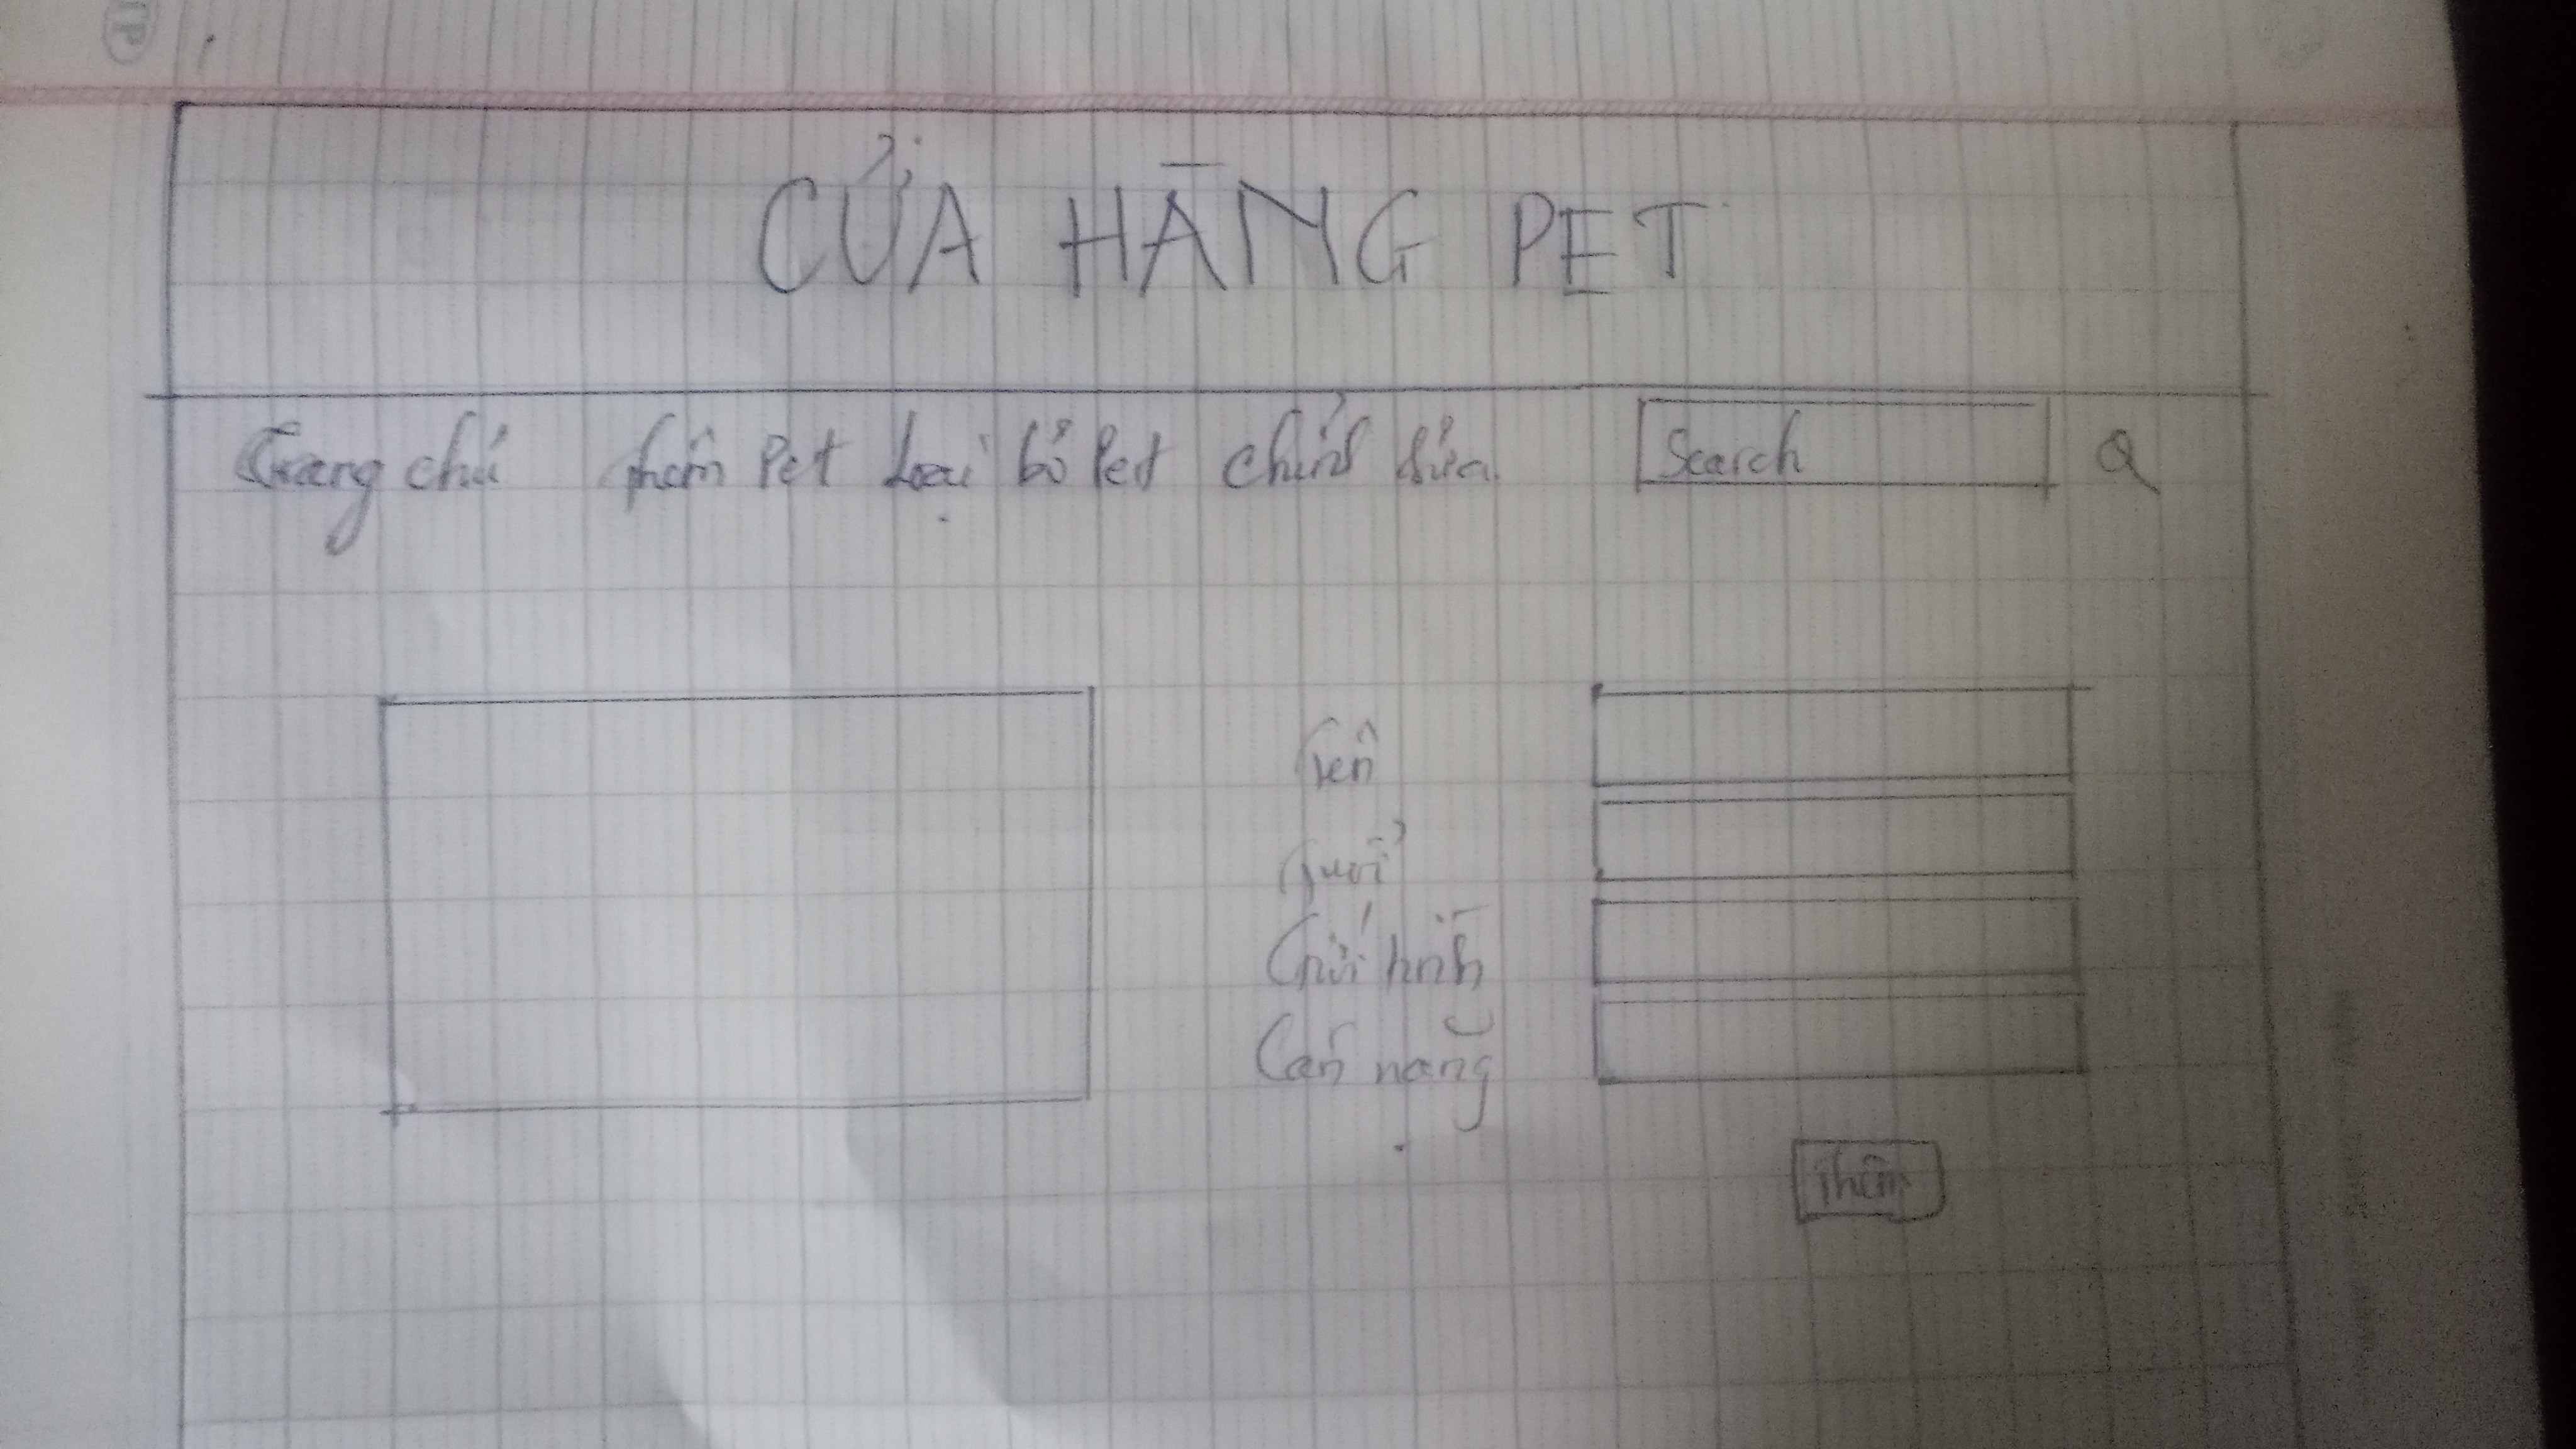 CỬA HÀNG PET
Trang chủ thêm Pet Loại bỏ Pet chỉnh sửa Search
Tên
Tuổi
Giới tính
Cân nặng
Thêm